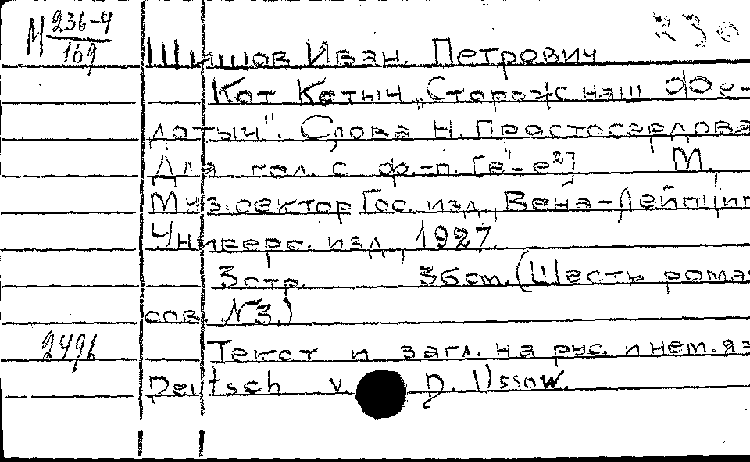 М 236-4/169
230
Шишов Иван Петрович
Кот Котыч „Сторож наш Фе-
дотыч". Слова Н. Простосердова
Для гол. с ф.-п. [е¹-е²] М.
Муз. сектор Гос. изд., Вена-Лейпциг
Универс. изд., 1927.
3 стр. 36 ст. (Шесть роман
сов. №3.)
Текст и загл. на рус. и нем. яз
Deutsch v. D. Ussow.